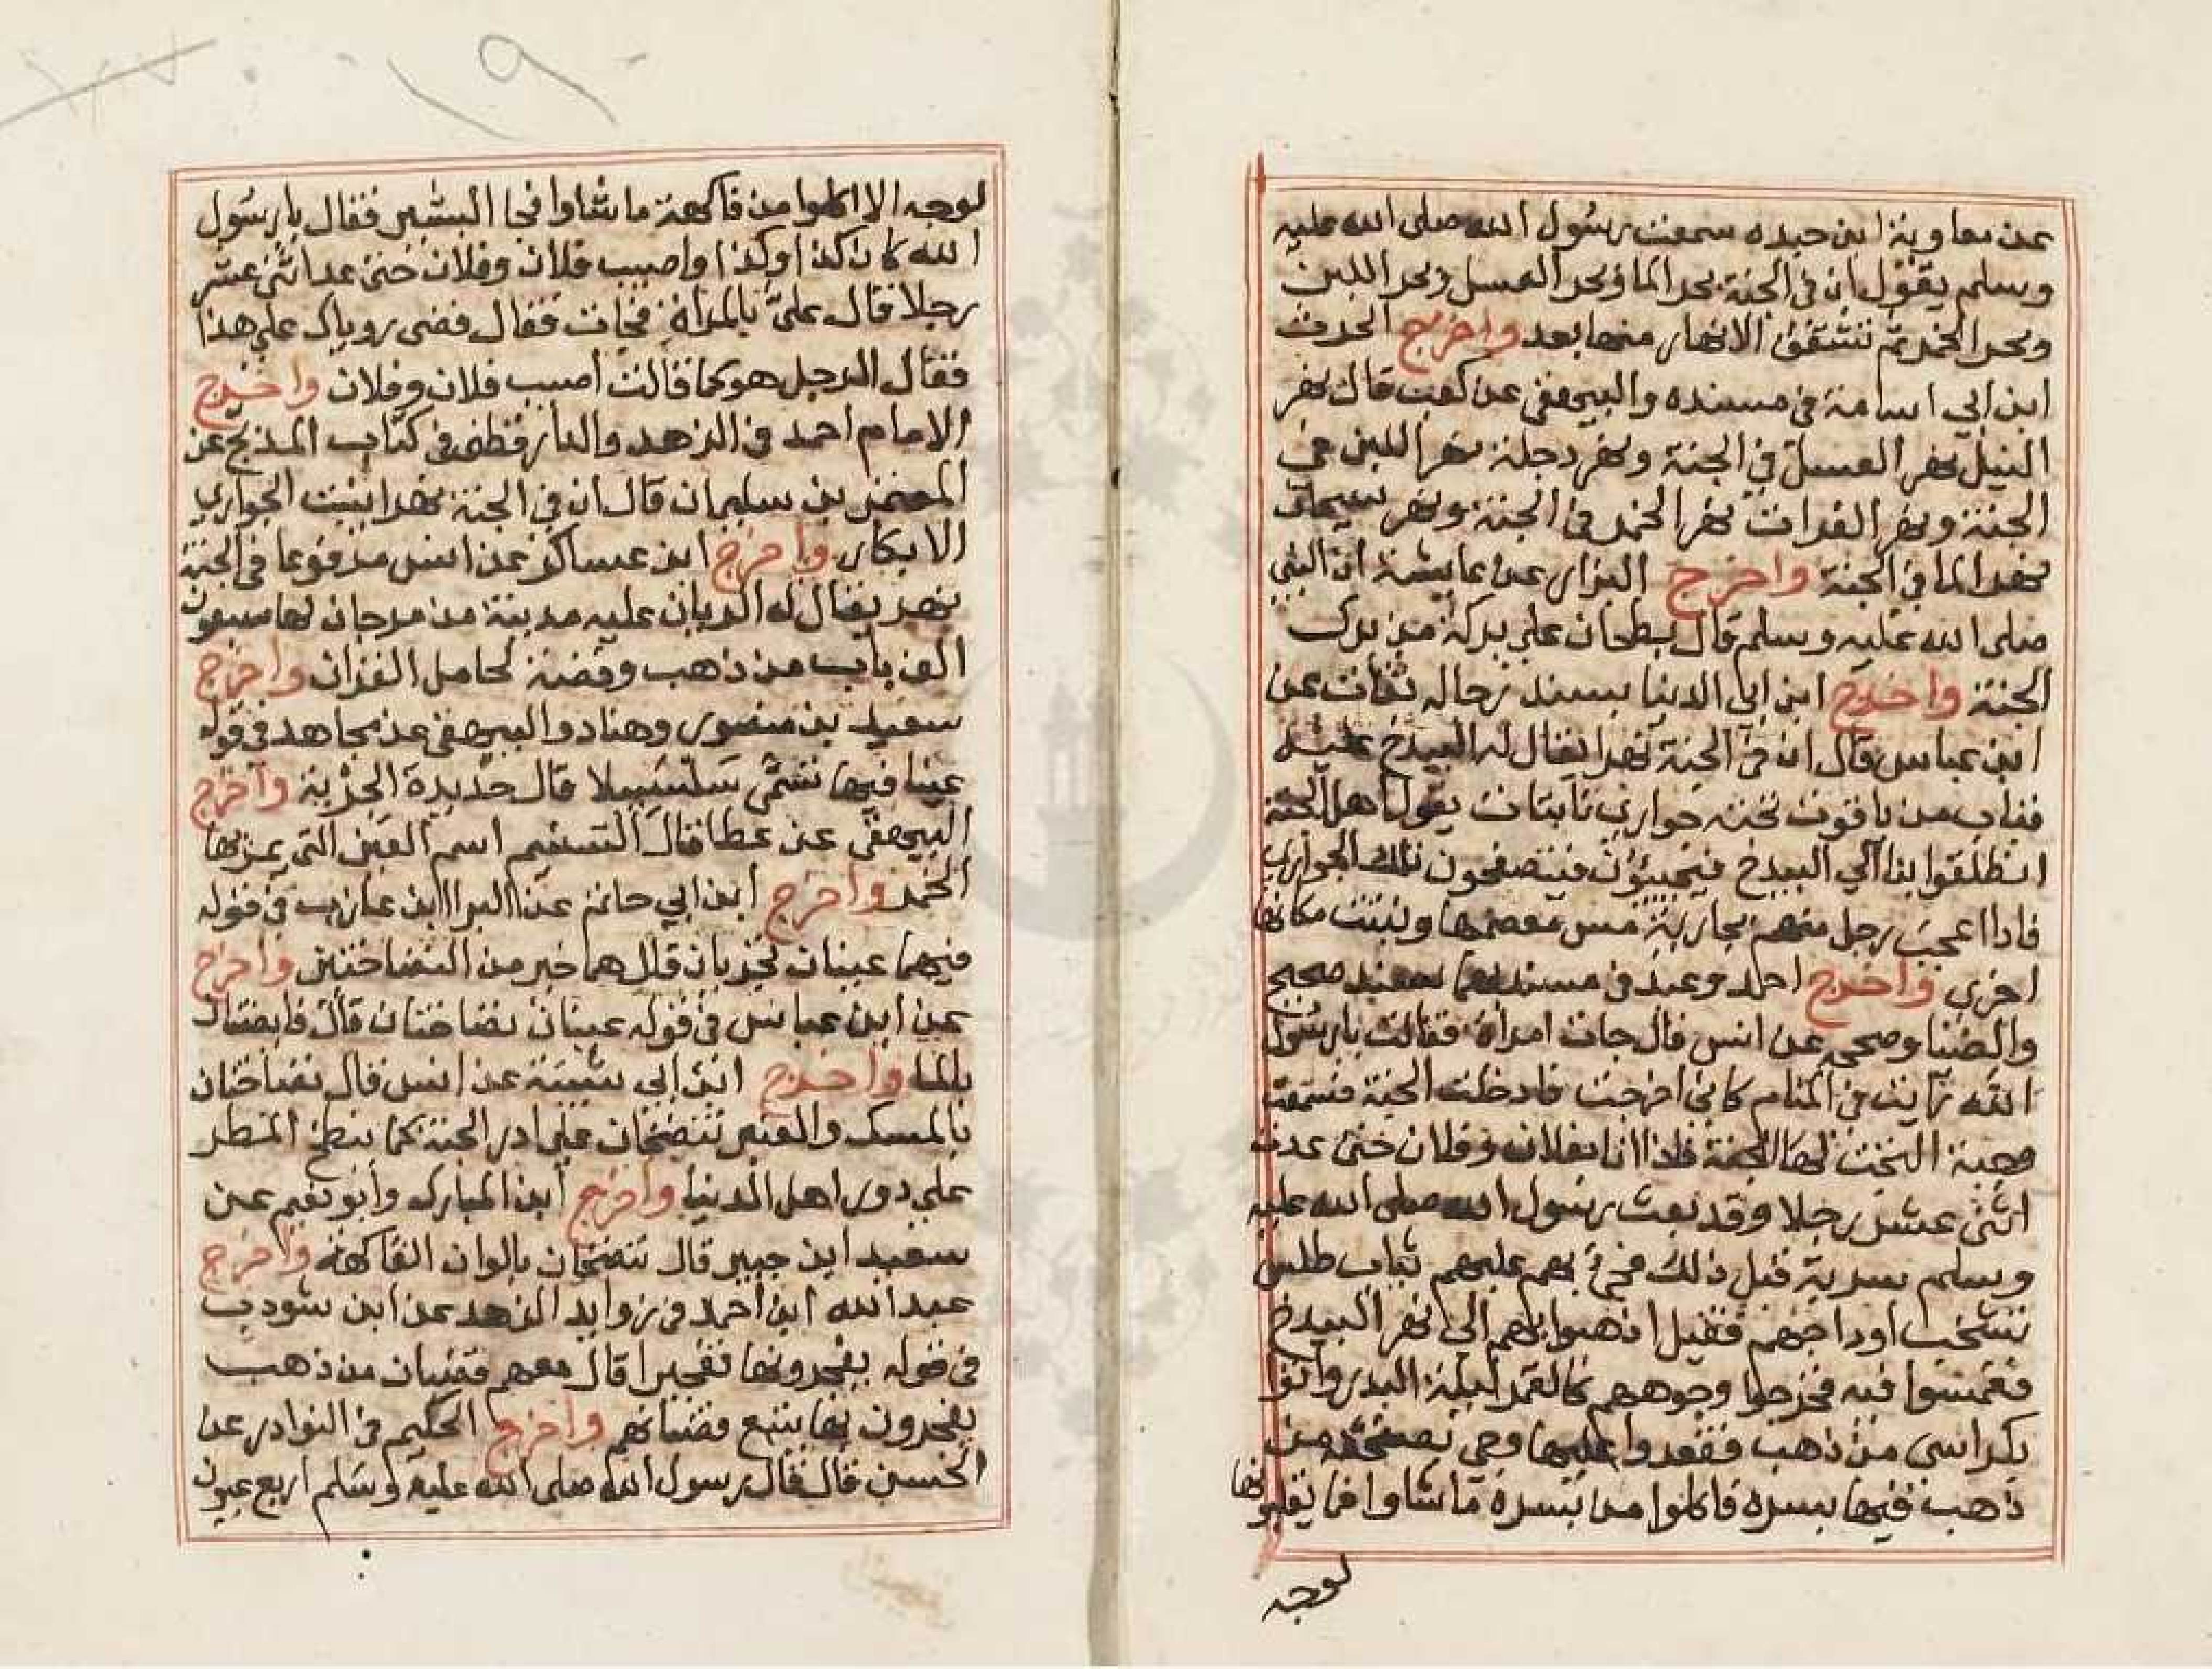 عن معاوية ابن حيده سمعت رسول الله صلى الله عليه
وسلم يقول ان في الجنة بحر الما وبحر العسل وبحر اللبن
وبحر الخمر ثم تشقق الانهار منها بعد واخرج الحرث
ابن ابي اسامة في مسنده والبيهقي عن كعب قال نهر
النيل نهر العسل في الجنة ونهر دجلة نهر اللبن في
الجنة ونهر الفرات نهر الخمر في الجنة ونهر سيحان
نهر الما في الجنة واخرج البزار عن عايشة ان النبي
صلى الله عليه وسلم قال بطحان على بركة من برك
الجنة واخرج ابن ابي الدنيا بسند رجاله ثقات عن
ابن عباس قال ان في الجنة نهرا يقال له البيدخ عليه
قباب من ياقوت تحته جواري نابتات يقول اهل الجنة
انطلقوا بنا الي البيدخ فيجيبؤن فيتصفحون تلك الجواري
فاذا اعجب رجل منهم بجارية مس معصمها ونبتت مكانها
اخري واخرج احمد وعبد في مسنديهما بسند صحيح
والضيا وصححه عن انس قال جات امراة فقالت يا رسول
الله رايت في المنام كاني اخرجت فادخلت الجنة فسمعت
وجبة التجت لها الجنة فاذا انا بفلان وفلان حتى عدت
اثني عشر رجلا وقد بعث رسول الله صلى الله عليه
وسلم سرية قبل ذلك فجئ بهم عليهم ثياب طلس
تشخب اوداجهم فقيل اذهبوا بهم الي نهر البيدخ
فغمسوا فيه فخرجوا وجوههم كالقمر ليلة البدر واتوا
بكراسي من ذهب فقعدوا عليها وجي بصفحة من
ذهب فيها بسره فاكلوا من بسره ما شاوا فما يقلبونها
لوجه
لوجه الا اكلوا من فاكهة ما شاوا فجا البشير فقال يا رسول
الله كان كذا وكذا واصيب فلان وفلان حتى عد اثنى عشر
رجلا قال علىّ بالمراة فجات فقال قصى روياك على هذا
فقال الرجل هو كما قالت اصيب فلان وفلان واخرج
الامام احمد في الزهد والدارقطنى في كتاب المديح عن
المعتمر بن سليمان قال ان في الجنة نهرا ينبت الجواري
الابكار واخرج ابن عساكر عن انس مرفوعا في الجنة
نهر يقال له الريان عليه مدينة من مرجان لها سبعون
الف باب من ذهب وفضة لحامل القران واخرج
سعيد بن منصور وهناد والبيهقي عن مجاهد في قوله
عينا فيها تسمى سلسبيلا قال حديدة الجرية واخرج
البيهقي عن عطا قال التسنيم اسم العين التي يمزج بها
الخمر واخرج ابن ابي حاتم عن البرا ابن عازب في قوله
فيهما عينان تجريان قال هما خير من النضاختين واخرج
عن ابن عباس في قوله عينان نضاختان قال فايضتان
بالما واخرج ابن ابي شيبة عن انس قال نضاختان
بالمسك والعنبر تنضخان على ادر الجنة كما ينطخ المطر
علي دور اهل الدنيا واخرج ابن المبارك وابو نعيم عن
سعيد ابن جبير قال تنضخان بالوان الفاكهة واخرج
عبد الله ابن احمد في زوايد الزهد عن ابن شودب
في قوله يفجرونها تفجيرا قال معهم قضبان من ذهب
يفجرون بها يتبع قضبانهم واخرج الحكيم في النوادر عن
الحسن قال قال رسول الله صلى الله عليه وسلم اربع عيون